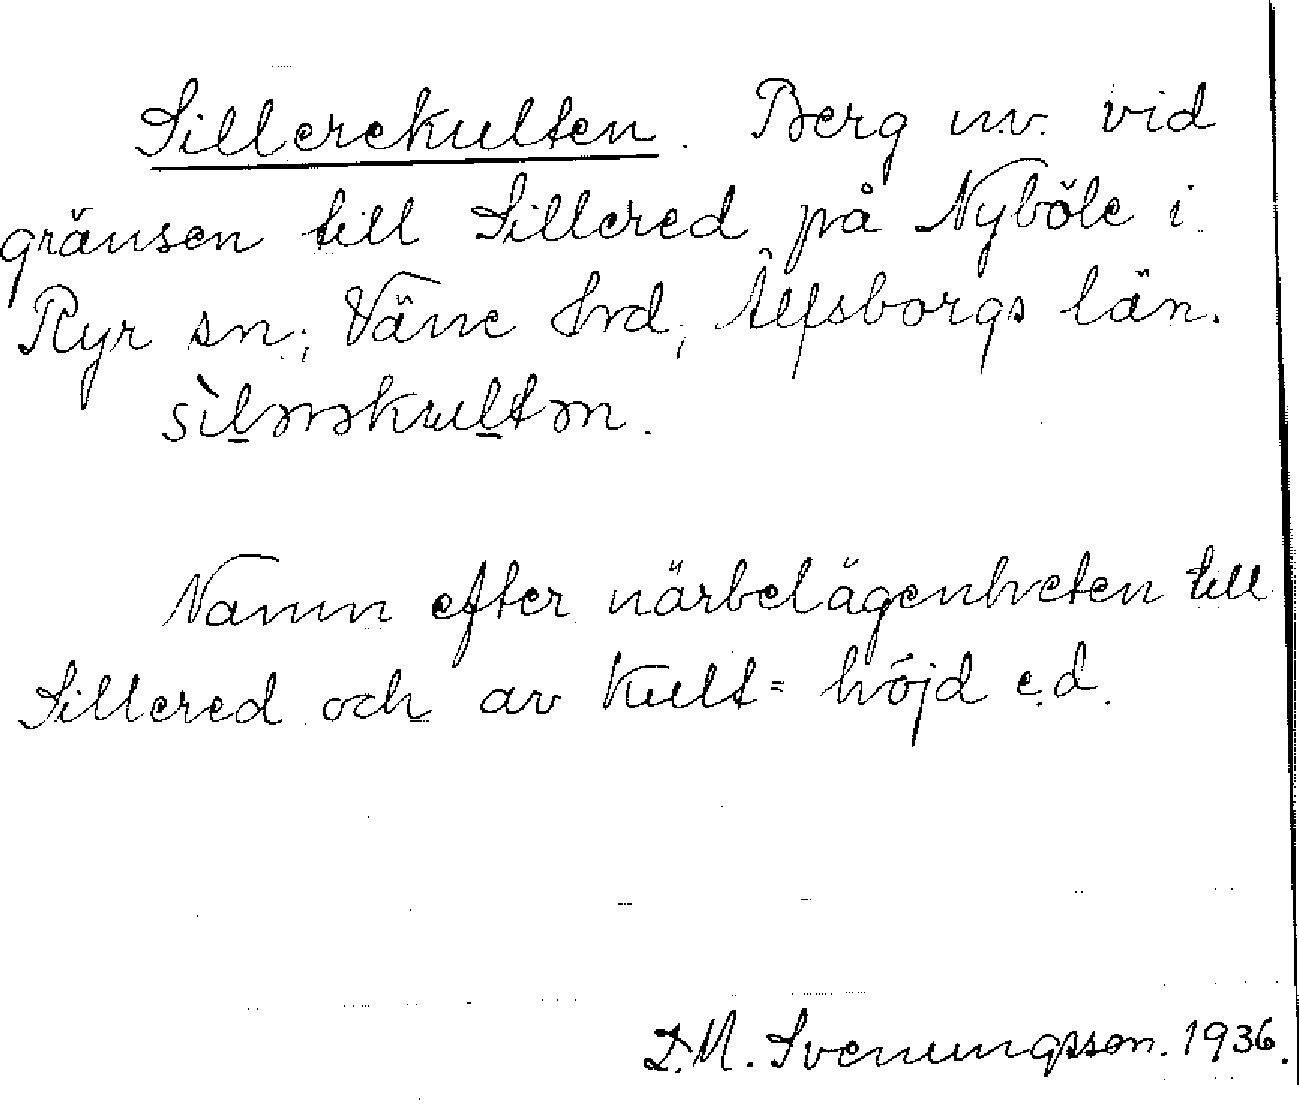 Sillerekulten. Berg n.v. vid
gränsen till Sillered på Nyböle i
Ryr sn; Väne hrd, Älfsborgs län.
sìlərəkultən.
Namn efter närbelägenheten till
Sillered och av Kult = höjd e.d.
D.M. Svenungsson. 1936.